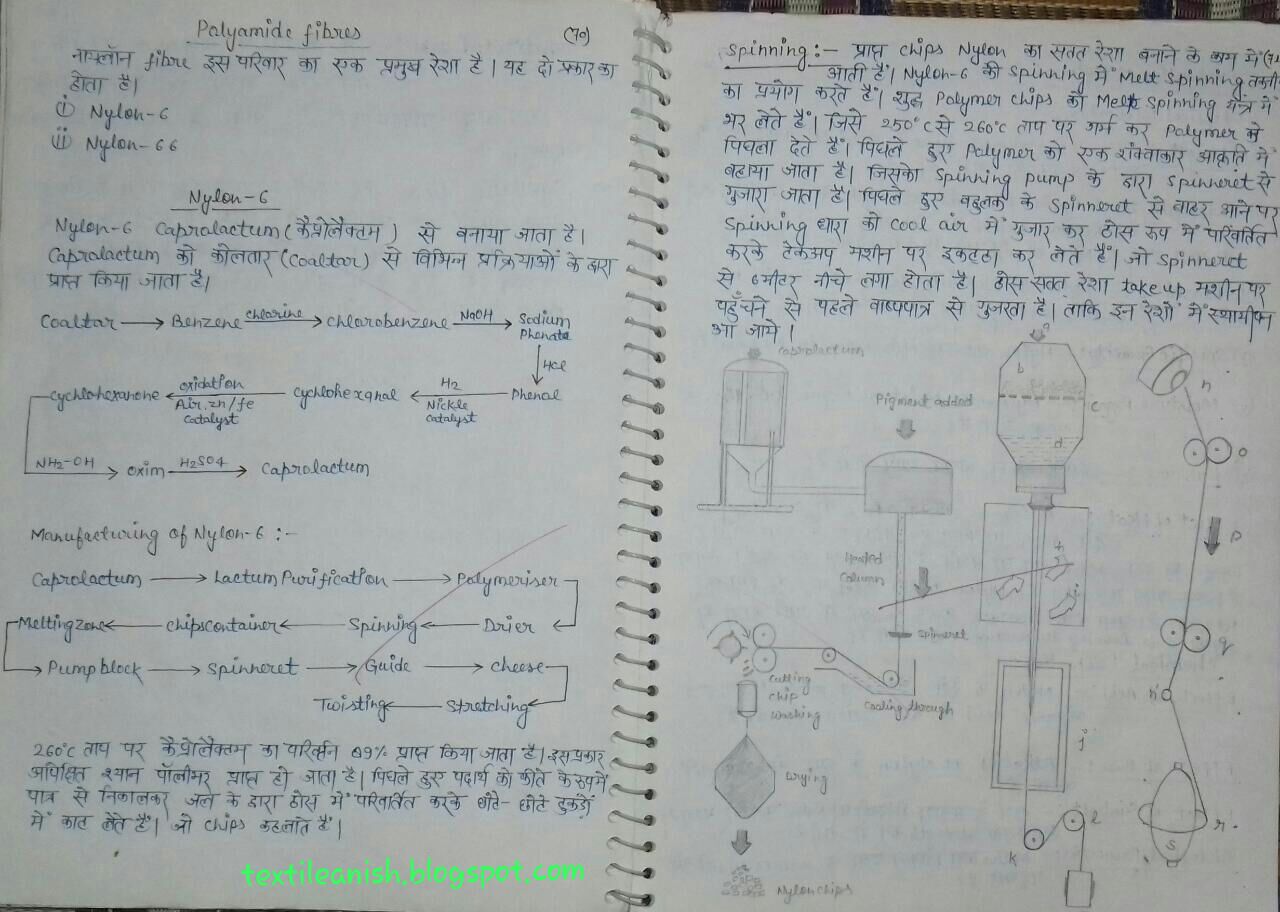 Polyamide fibres
(70)
नायलॉन fibre इस परिवार का एक प्रमुख रेशा है। यह दो प्रकार का
होता है।
i Nylon-6
ii Nylon-66
Nylon-6
Nylon-6 Caprolactum (कैप्रोलैक्टम) से बनाया जाता है।
Caprolactum को कोलतार (Coaltar) से विभिन्न प्रक्रियाओं के द्वारा
प्राप्त किया जाता है।
Coaltar → Benzene chlorine → chlorobenzene NaOH → Sodium
Phenate
↓ HCl
cychlohexanone ← oxidation Air, zn/fe catalyst cychlohexanal ← H2 Nickle catalyst Phenal
NH2-OH → oxim H2SO4 → Caprolactum
Manufacturing of Nylon-6 :-
Caprolactum → Lactum Purification → Polymeriser
Melting zone ← chips container ← Spinning ← Drier
Pump block → Spinneret → Guide → cheese
Twisting ← Stretching
260°C ताप पर कैप्रोलैक्टम का परिवर्तन 89% प्राप्त किया जाता है। इस प्रकार
अपेक्षित श्यान पॉलीमर प्राप्त हो जाता है। पिघले हुए पदार्थ को फीते के रूप में
पात्र से निकालकर जल के द्वारा ठोस में परिवर्तित करके छोटे-छोटे टुकड़ों
में काट लेते हैं। जो chips कहलाते हैं।
textileanish.blogspot.com
Spinning :- प्राप्त chips Nylon का सतत रेशा बनाने के काम में
आती हैं। Nylon-6 की Spinning में Melt Spinning
का प्रयोग करते हैं। शुद्ध Polymer chips को Melt Spinning यंत्र में
भर लेते हैं। जिसे 250°C से 260°C ताप पर गर्म कर Polymer को
पिघला देते हैं। पिघले हुए Polymer को एक शंक्वाकार आकृति में
बहाया जाता है। जिसको Spinning pump के द्वारा Spinneret से
गुजारा जाता है। पिघले हुए बहुलक के Spinneret से बाहर आने पर
Spinning धारा को Cool air में गुजार कर ठोस रूप में परिवर्तित
करके टेकअप मशीन पर इकट्ठा कर लेते हैं। जो Spinneret
से 6 मीटर नीचे लगा होता है। ठोस सतत रेशा take up मशीन पर
पहुँचने से पहले वाष्पपात्र से गुजरता है। ताकि इन रेशों में स्थायीपन
आ जाये।
Caprolactum
Pigment added
Heated
Column
Spineret
Cutting
chip
washing
Cooling through
drying
Nylon chips
a
b
c
d
j
k
l
n
o
p
q
n'
r
s